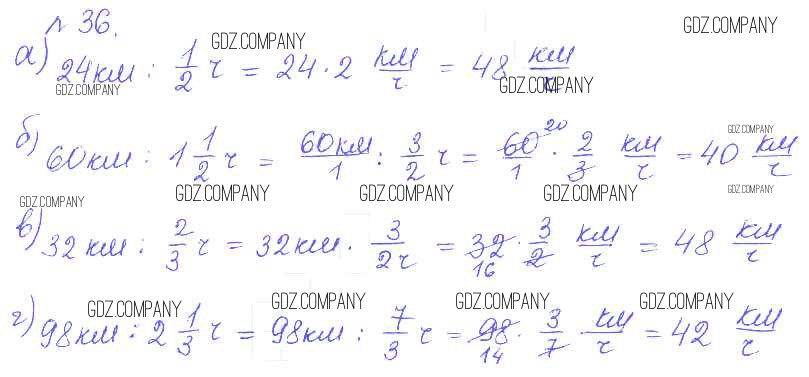 № 36.
GDZ.COMPANY GDZ.COMPANY
а) 24 км : 1/2 ч = 24 · 2 км/ч = 48 км/ч
GDZ.COMPANY GDZ.COMPANY
б) 60 км : 1 1/2 ч = 60 км/1 : 3/2 ч = 60/1 20 · 2/3 км/ч = 40 км/ч
GDZ.COMPANY
GDZ.COMPANY GDZ.COMPANY GDZ.COMPANY GDZ.COMPANY GDZ.COMPANY
в) 32 км : 2/3 ч = 32 км · 3/2ч = 32 16 · 3/2 км/ч = 48 км/ч
GDZ.COMPANY GDZ.COMPANY GDZ.COMPANY GDZ.COMPANY
г) 98 км : 2 1/3 ч = 98 км : 7/3 ч = 98 14 · 3/7 · км/ч = 42 км/ч